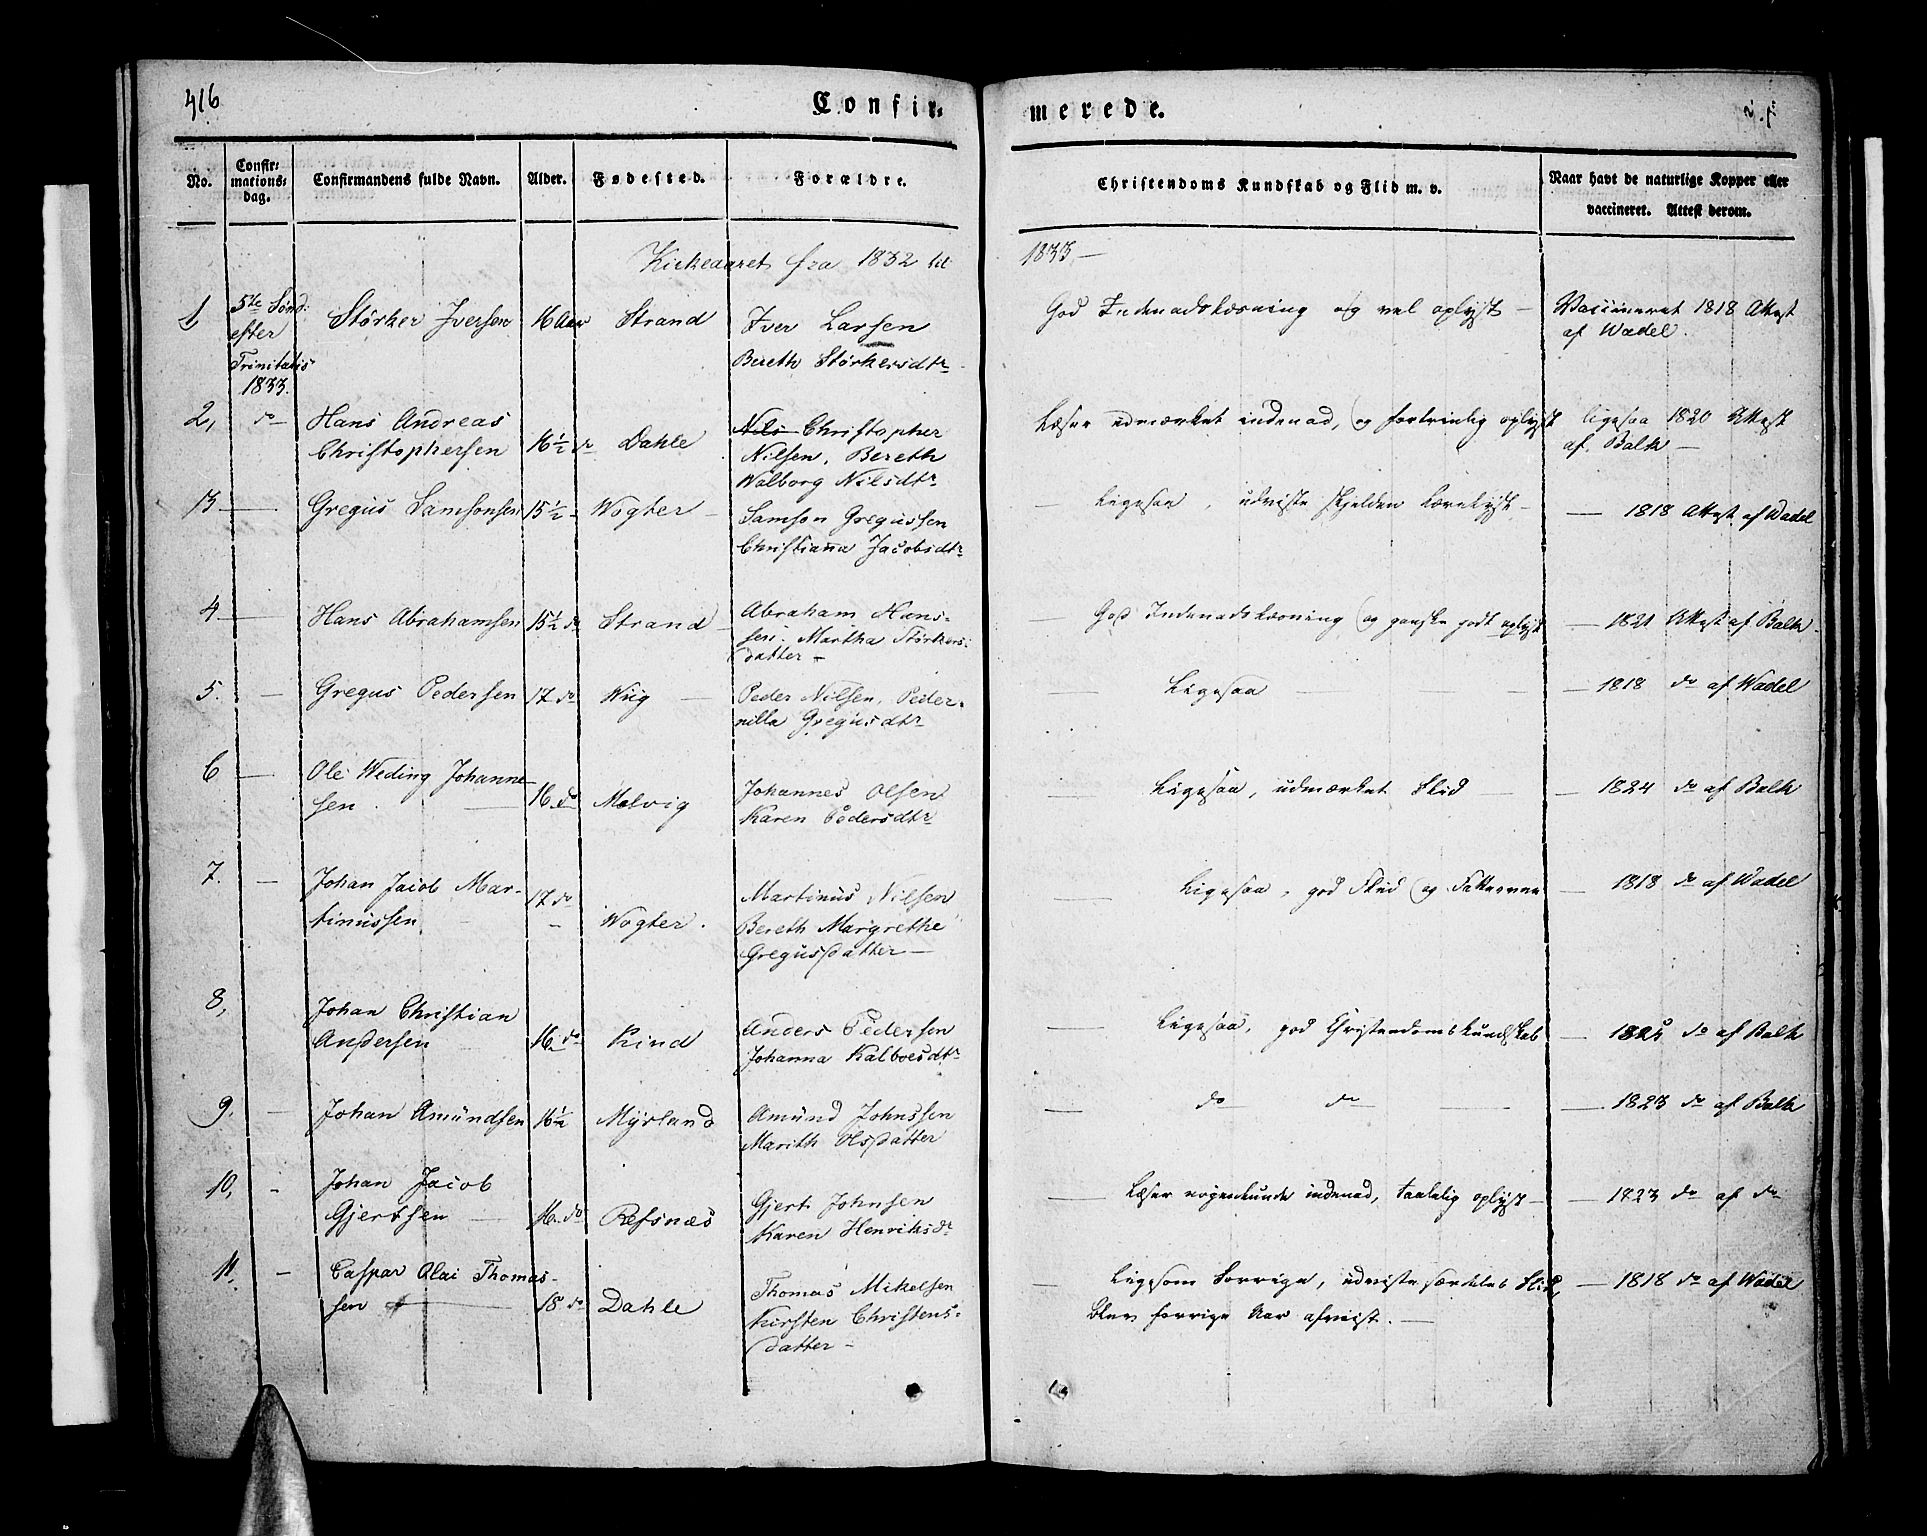 416
Confir-
merede.
No.
Confir-
mations-
dag.
Confirmandens fulde Navn.
Alder.
Fødested.
Forældre.
Christendoms Kundskab og Flid m. v.
Naar havt de naturlige Kopper eller
vaccineret. Attest derom.
Kirkeaaret fra 1832 til
1833 —
1
5te Sønd:
efter
Trinitatis
1833.
Størker Iversen
16 Aar
Strand
Iver Larsen
Bereth Størkersdtr
God Indenadslæsning og vel oplyst —
Vaccineret 1818 Attest
af Wadel.
2,
do
Hans Andreas
Christophersen
16½ do
Dahle
Nils Christopher
Nilsen, Bereth
Walborg Nilsdtr
Læser udmærket indenad, og fortrinlig oplyst
ligesaa 1820 Attest
af Balk —
13 —
Gregus Samsonsen
15½ -
Wogter —
Samson Gregussen
Christiana Jacobsdtr
— Ligesaa, udviste sjelden Lærelyst —
— 1818 Attest af Wadel
4 —
Hans Abrahamsen
15½ do
Strand —
Abraham Hans-
sen. Martha Størkers-
datter —
— God Indenadslæsning og ganske godt oplyst
— 1821 Attest af Balk
5. —
Gregus Pedersen
17 do
Wiig —
Peder Nilsen, Peder-
nilla Gregusdtr
Ligesaa —
— 1818 do af Wadel
6 —
Ole Weding Johanne-
sen. —
16 do
Malvig
Johannes Olsen
Karen Pedersdtr
Ligesaa, udmærket Flid —
— 1824 do af Balk
7. —
Johan Jacob Mar-
tinussen —
17 do
-
Wogter.
Martinus Nilsen
Bereth Margrethe
Gregusdatter —
— Ligesaa, god Flid og Fatteevne
— 1818 do af Wadel
8,
Johan Christian
Andersen
16 do
Kind
Anders Pedersen
Johanna Kalboesdtr
— Ligesaa, god Christendomskundskab
— 1825 do af Balk
9. —
Johan Amundsen
16½
Myrland
Amund Johnssen
Marith Olsdatter
— do do —
— 1823 do af Balk
10, -
Johan Jacob
Gjertsen —
16 do
Refsnæs
Gjert Johnsen
Karen Henriksdr
— Læser nogenlunde indenad, taalelig oplyst —
— 1823 do af do
11. —
Caspar Olai Thomas-
sen —
18 do
Dahle
Thomas Mikelsen
Kirsten Christens-
datter —
— Ligesom Forrige, udviste særdeles Flid,
blev forrige Aar afvist. —
— 1818 do af Wadel